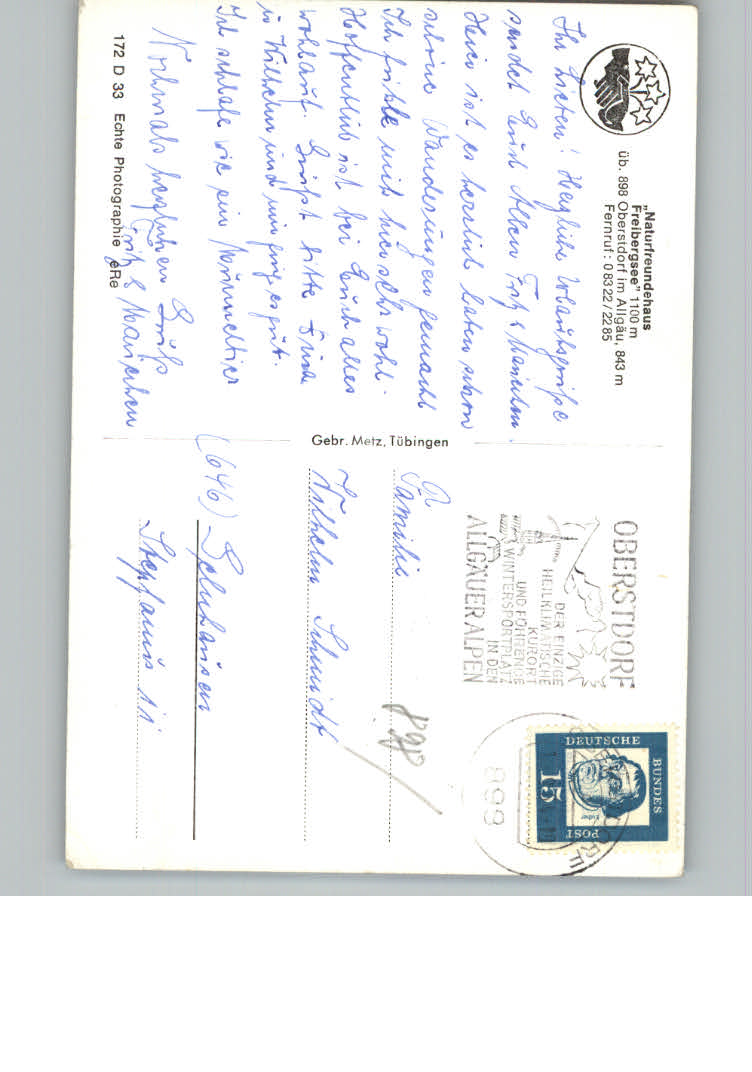 „Naturfreundehaus
Freibergsee" 1100 m
üb. 898 Oberstdorf im Allgäu, 843 m
Fernruf: 08322/2285
Ihr Lieben! Herzliche Urlaubsgrüße
sendet Euch Allen Fritz &
Hier ist es herrlich haben schon
schöne Wanderungen gemacht
Ich fühle mich hier sehr wohl.
Hoffentlich ist bei Euch alles
wohlauf. Grüßt bitte
in und mir ging es gut.
Ich schlafe wie ein Murmeltier
Nochmals herzlichen Gruß
Fritz &
172 D 33 Echte Photographie eRe
Gebr. Metz, Tübingen
OBERSTDORF
DER EINZIGE
HEILKLIMATISCHE
KURORT
UND FÜHRENDE
WINTERSPORTPLATZ
IN DEN
ALLGÄUER ALPEN
OBERSTDORF
899
DEUTSCHE
BUNDES
POST
15
Luther
Familie
Wilhelm Schmidt
898
(646) Gelnhausen
Stephanus 11